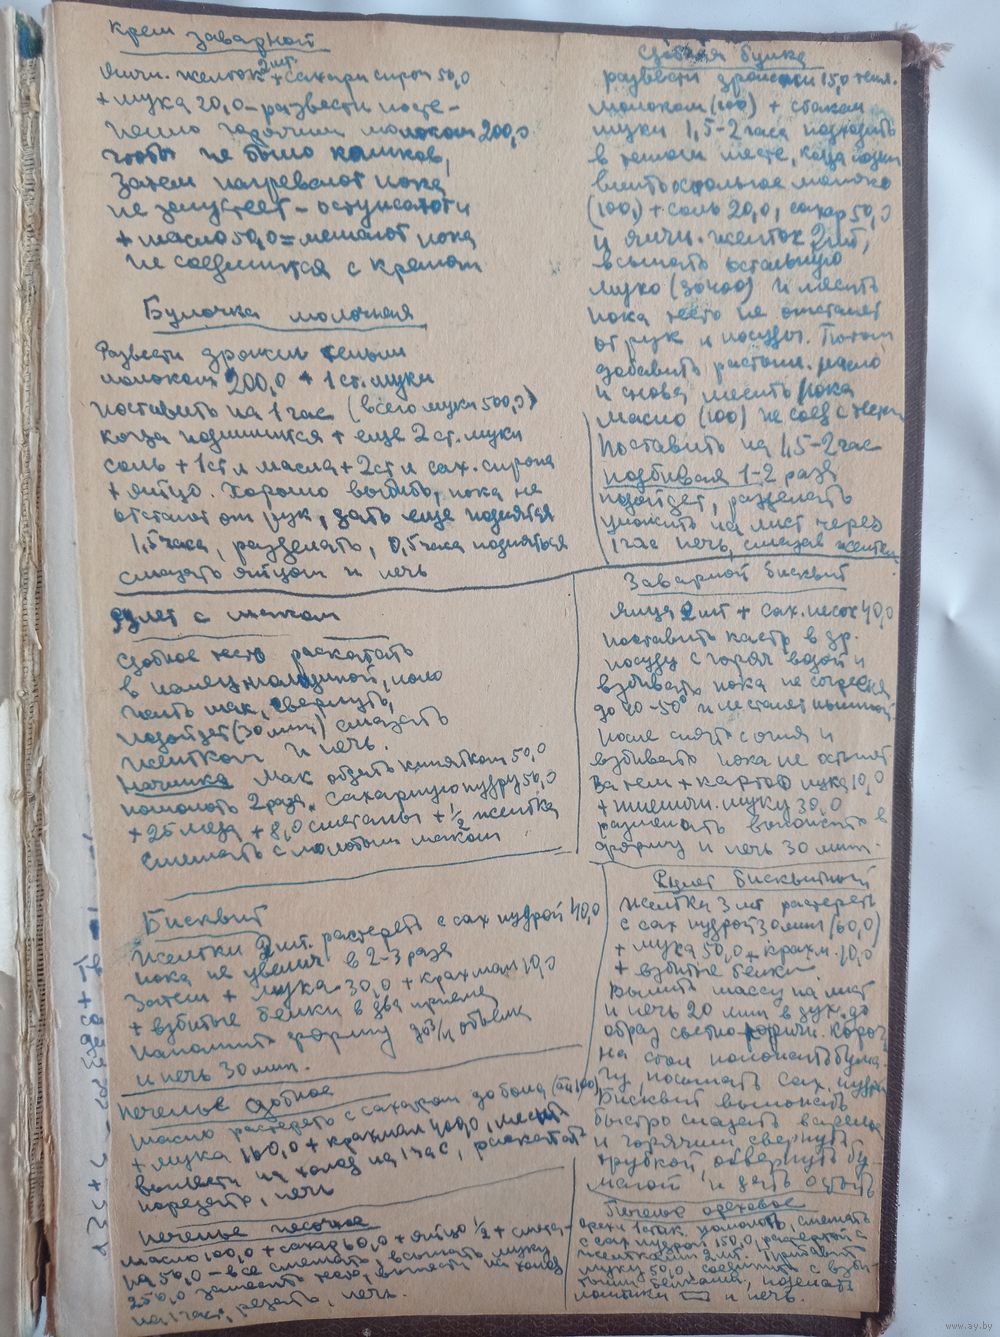 Крем заварной
Яичн. желток 2 шт. + сахарн сироп 50,0
+ мука 20,0 – развести посте-
пенно горячим молоком 200,0
чтобы не было комков,
затем нагревают пока
не загустеет – остужают и
+ масло 50,0 = мешают пока
не соединится с кремом
Булочка молочная
Развести дрожжи теплым
молоком 200,0 + 1 ст. муки
поставить на 1 час (всего муки 500,0)
когда поднимится + еще 2 ст. муки
соль + 1 ст л масла + 2 ст л сах. сиропа
+ яйцо. Хорошо выбить, пока не
отстает от рук, дать еще поднятся
1,5 часа, разделать, 0,5 часа подняться
смазать яйцом и печь
Рулет с маком
Сдобное тесто раскатать
в палец толщиной, поло
жить мак, свернуть,
подойдет (30 мин) смазать
желтком и печь.
Начинка мак обдать кипятком 50,0
помолоть 2 раза, сахарную пудру 50,0
+ 25 меда + 8,0 сметаны + ½ желтка
смешать с молотым маком
Бисквит
Желтки 2 шт. растереть с сах пудрой 40,0
пока не увелич. в 2-3 раза
Затем + мука 30,0 + крахмал 10,0
+ взбитые белки в два приема
наполнить форму до ¾ объема
и печь 30 мин.
Печенье сдобное
Масло растереть с сахаром до бела (аа 100)
+ мука 160,0 + крахмал 400,0, месить
вынести на холод на 1 час, раскатать
порезать, печь
Печенье песочное
масло 100,0 + сахар 60,0 + яйцо ½ + смета-
на 50,0 – все смешать, всыпать муку
250,0 замесить тесто, вынести на холод
на 1 час, резать, печь.
Сдобная булка
развести дрожжи 15,0 тепл.
молоком (100) + стакан
муки 1,5-2 часа подходить
в теплом месте, когда
влить остальное молоко
(100,) + соль 20,0, сахар 50,0
и яичн. желток 2 шт,
всыпать остальную
муко (300-400) и месить
пока тесто не отстанет
от рук и посуды. Потом
добавить растопл. масло
и снова месить пока
масло (100) не соед с тестом
Поставить на 1,5-2 час
подбивая 1-2 раза
подойдет, разделать
уложить на лист через
1 час печь, смазав желтком
Заварной бисквит
Яйца 2 шт + сах. песок 40,0
поставить кастр в др.
посуду с горяч водой и
взбивать пока не согреется
до 40-50° и не станет пышной
после снять с огня и
взбивать пока не остынет
Затем + картоф мука 10,0
+ пшеничн. муку 30,0
размешать выложить в
форму и печь 30 мин.
Рулет бисквитный
Желтки 3 шт растереть
с сах пудрой 30 мин (60,0)
+ мука 50,0 + крахм. 10,0
+ взбитые белки.
Вылить массу на лист
и печь 20 мин в дух. до
образ светло корич. корочки
на стол положить бума
гу, посыпать сах. пудрой
Бисквит выложить
быстро смазать вареньем
и горячим свернуть
трубкой, обвернуть бу-
магой и дать остыть
Печенье ореховое
орехи 1 стак. помолоть, смешать
с сах пудрой 150,0, растертой с
желтками 2 шт. Прибавить
муку 50,0 соединить с взби-
тыми белками, поделать
ломтики и печь.
www.ay.by